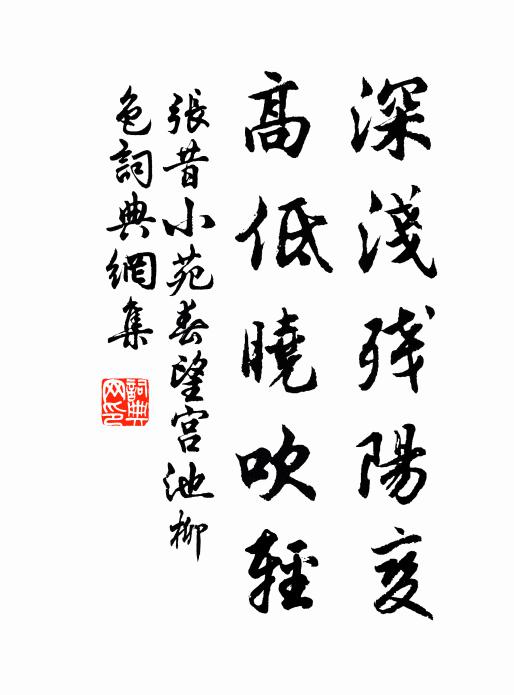 深淺残陽变
高低曉吹輕
張昔小苑春望宫池柳
色詞典網集
詞典
网印